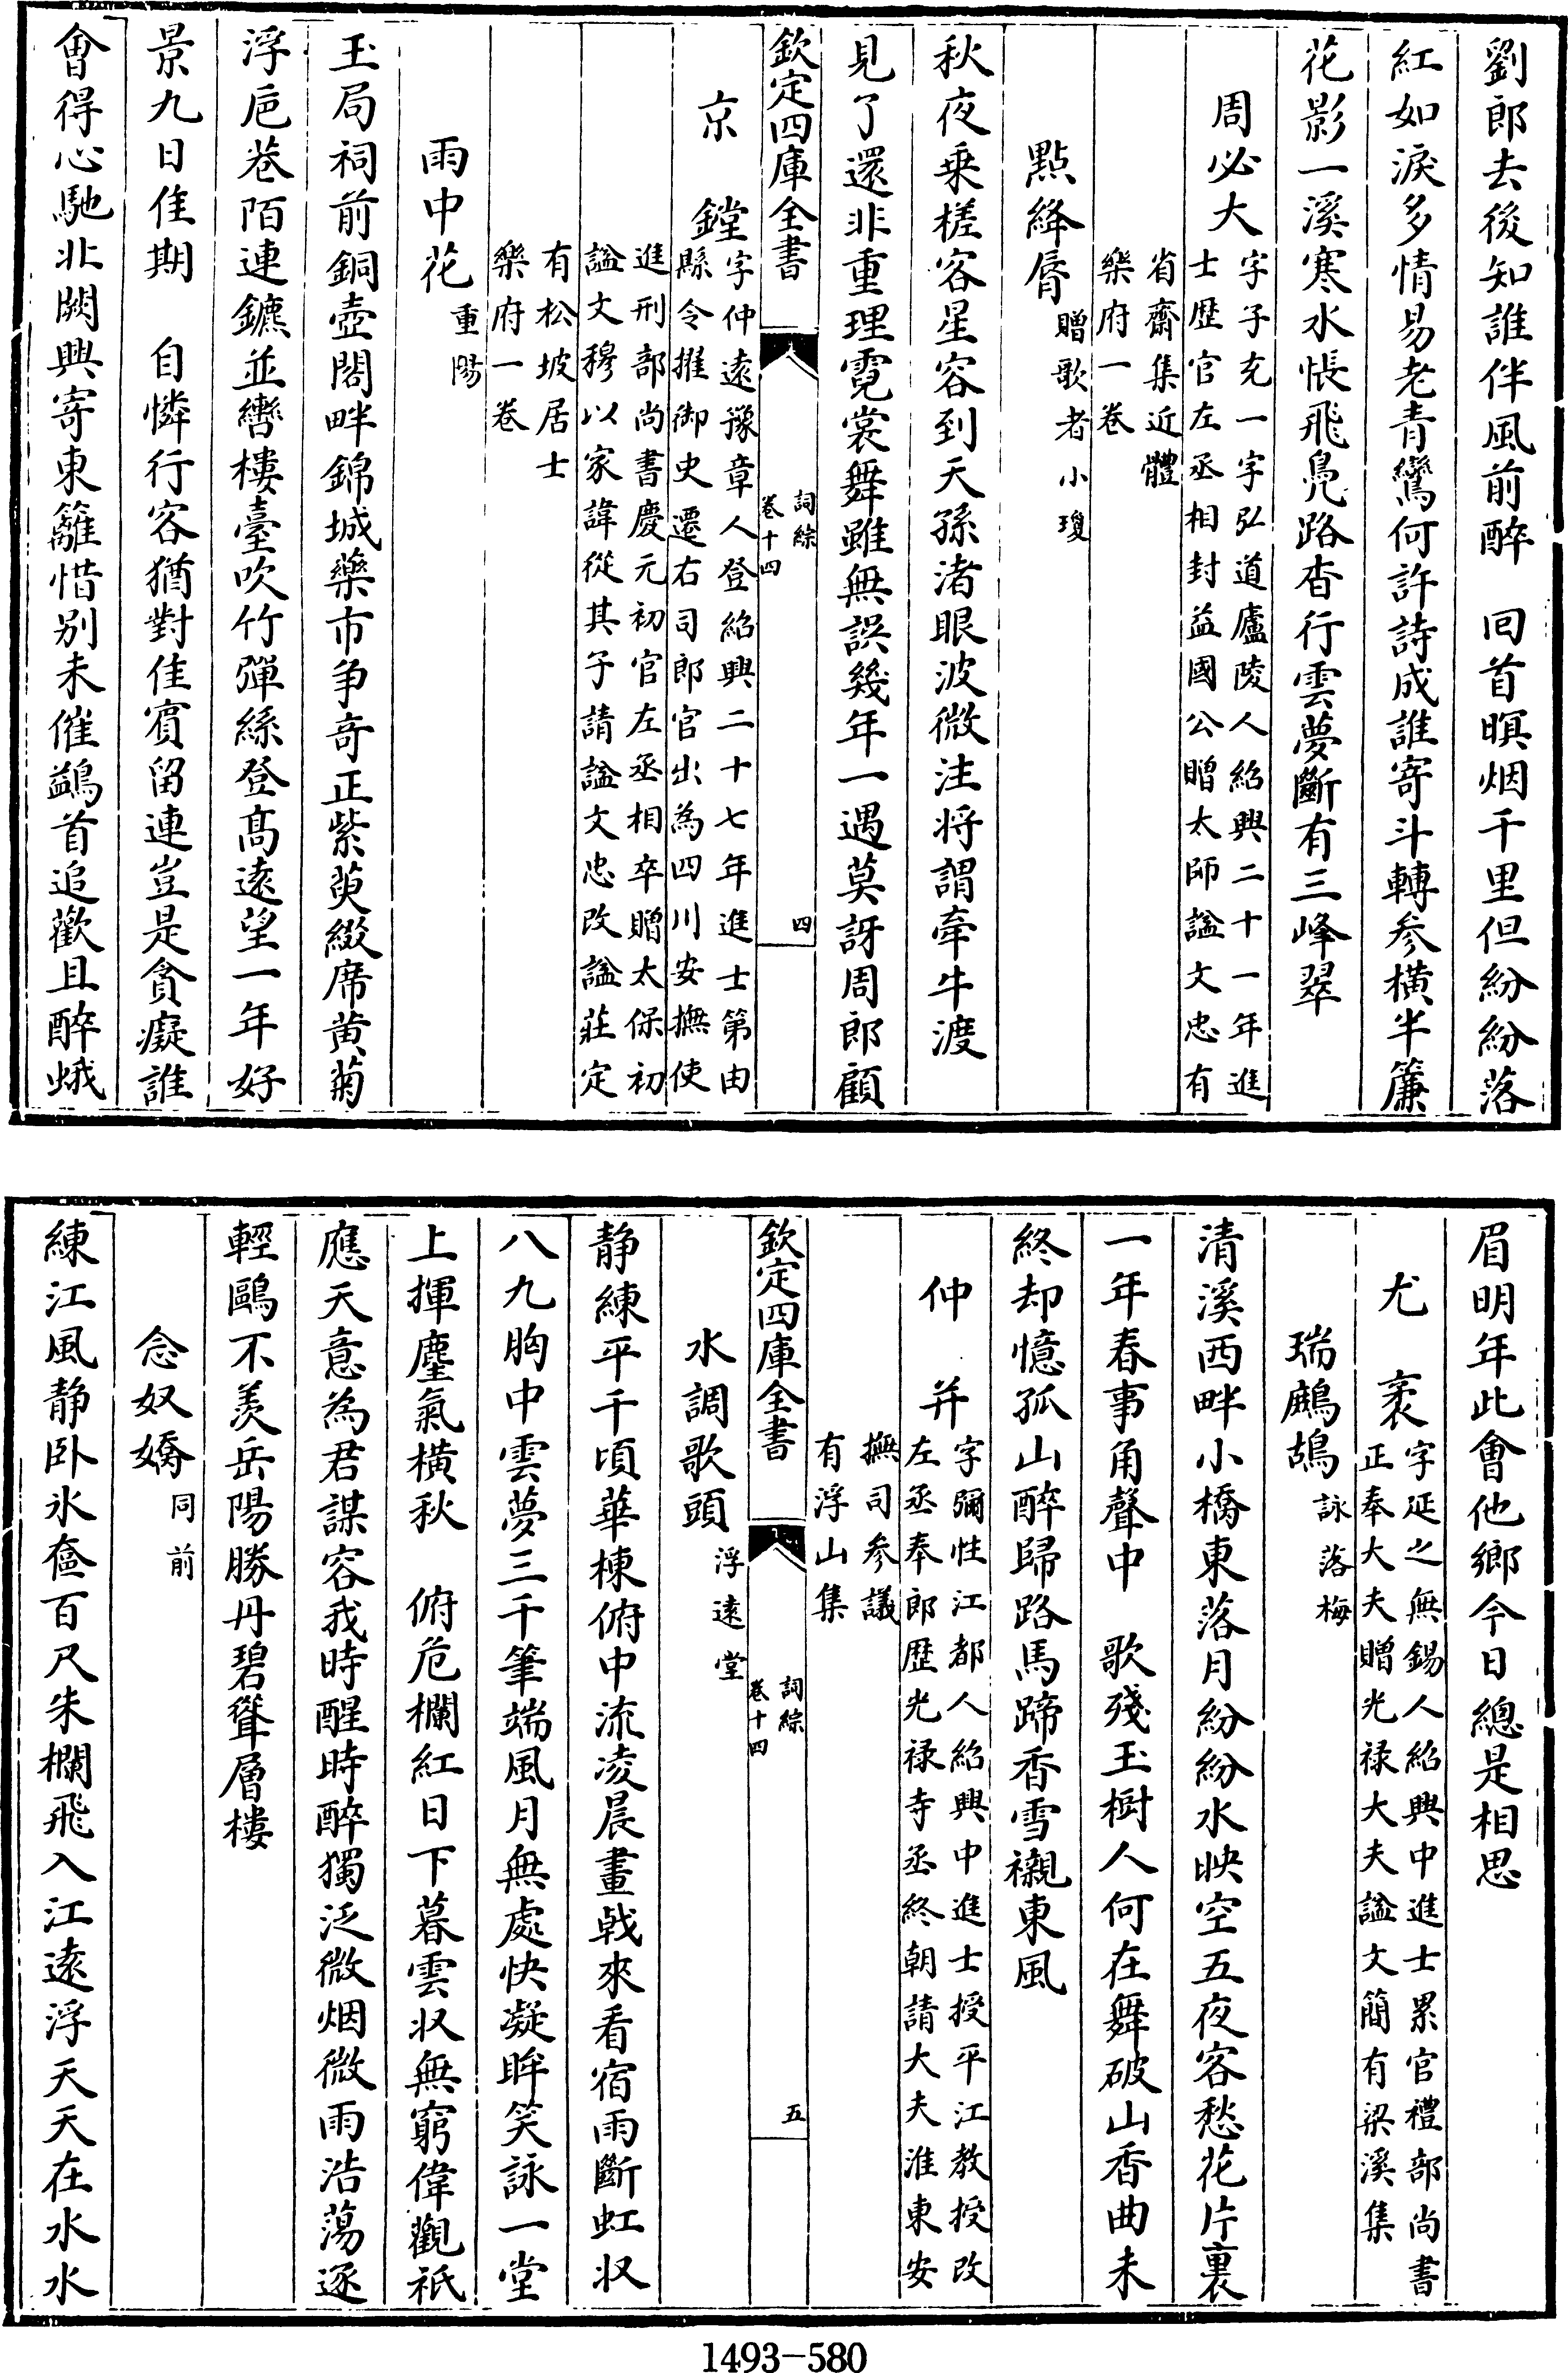 劉郎去後知誰伴風前醉　回首暝烟千里但紛紛落
紅如淚多情易老青鸞何許詩成誰寄斗轉参橫半簾
花影一溪寒水悵飛鳧路杳行雲夢斷有三峰翠
周必大
字子充一字弘道廬陵人紹興二十一年進
士歴官左丞相封益國公贈太師諡文忠有
省齋集近體
樂府一卷
點絳脣 贈歌者小瓊
秋夜乗槎客星容到天孫渚眼波微注将謂牽牛渡
見了還非重理霓裳舞雖無誤幾年一遇莫訝周郎顧
欽定四庫全書
詞綜
卷十四
四
京　鏜
字仲遠豫章人登紹興二十七年進士第由
縣令擢御史遷右司郎官出為四川安撫使
進刑部尚書慶元初官左丞相卒贈太保初
諡文穆以家諱從其子請諡文忠改諡莊定
有松坡居士
樂府一卷
雨中花 重陽
玉局祠前銅壺閣畔錦城藥市争奇正紫萸綴席黄菊
浮巵巷陌連鑣並轡樓臺吹竹彈絲登髙遠望一年好
景九日佳期　自憐行客猶對佳賓留連豈是貪癡誰
會得心馳北闕興寄東籬惜别未催鷁首追歡且醉蛾
眉明年此會他鄉今日總是相思
尤　袤
字延之無錫人紹興中進士累官禮部尚書
正奉大夫贈光禄大夫諡文簡有梁溪集
瑞鷓鴣 詠落梅
清溪西畔小橋東落月紛紛水映空五夜客愁花片裏
一年春事角聲中　歌殘玉樹人何在舞破山香曲未
終却憶孤山醉歸路馬蹄香雪襯東風
仲　并
字彌性江都人紹興中進士授平江教授改
左丞奉郎歴光禄寺丞終朝請大夫淮東安
撫司参議
有浮山集
欽定四庫全書
詞綜
卷十四
五
水調歌頭 浮遠堂
静練平千頃華棟俯中流凌晨畫戟來看宿雨斷虹収
八九胸中雲夢三千筆端風月無處快凝眸笑詠一堂
上揮麈氣横秋　俯危欄紅日下暮雲収無窮偉觀祇
應天意為君謀容我時醒時醉獨泛微烟微雨浩蕩逐
輕鷗不羡岳陽勝丹碧聳層樓
念奴嬌 同前
練江風静卧氷奩百尺朱欄飛入江遠浮天天在水水
1493-580